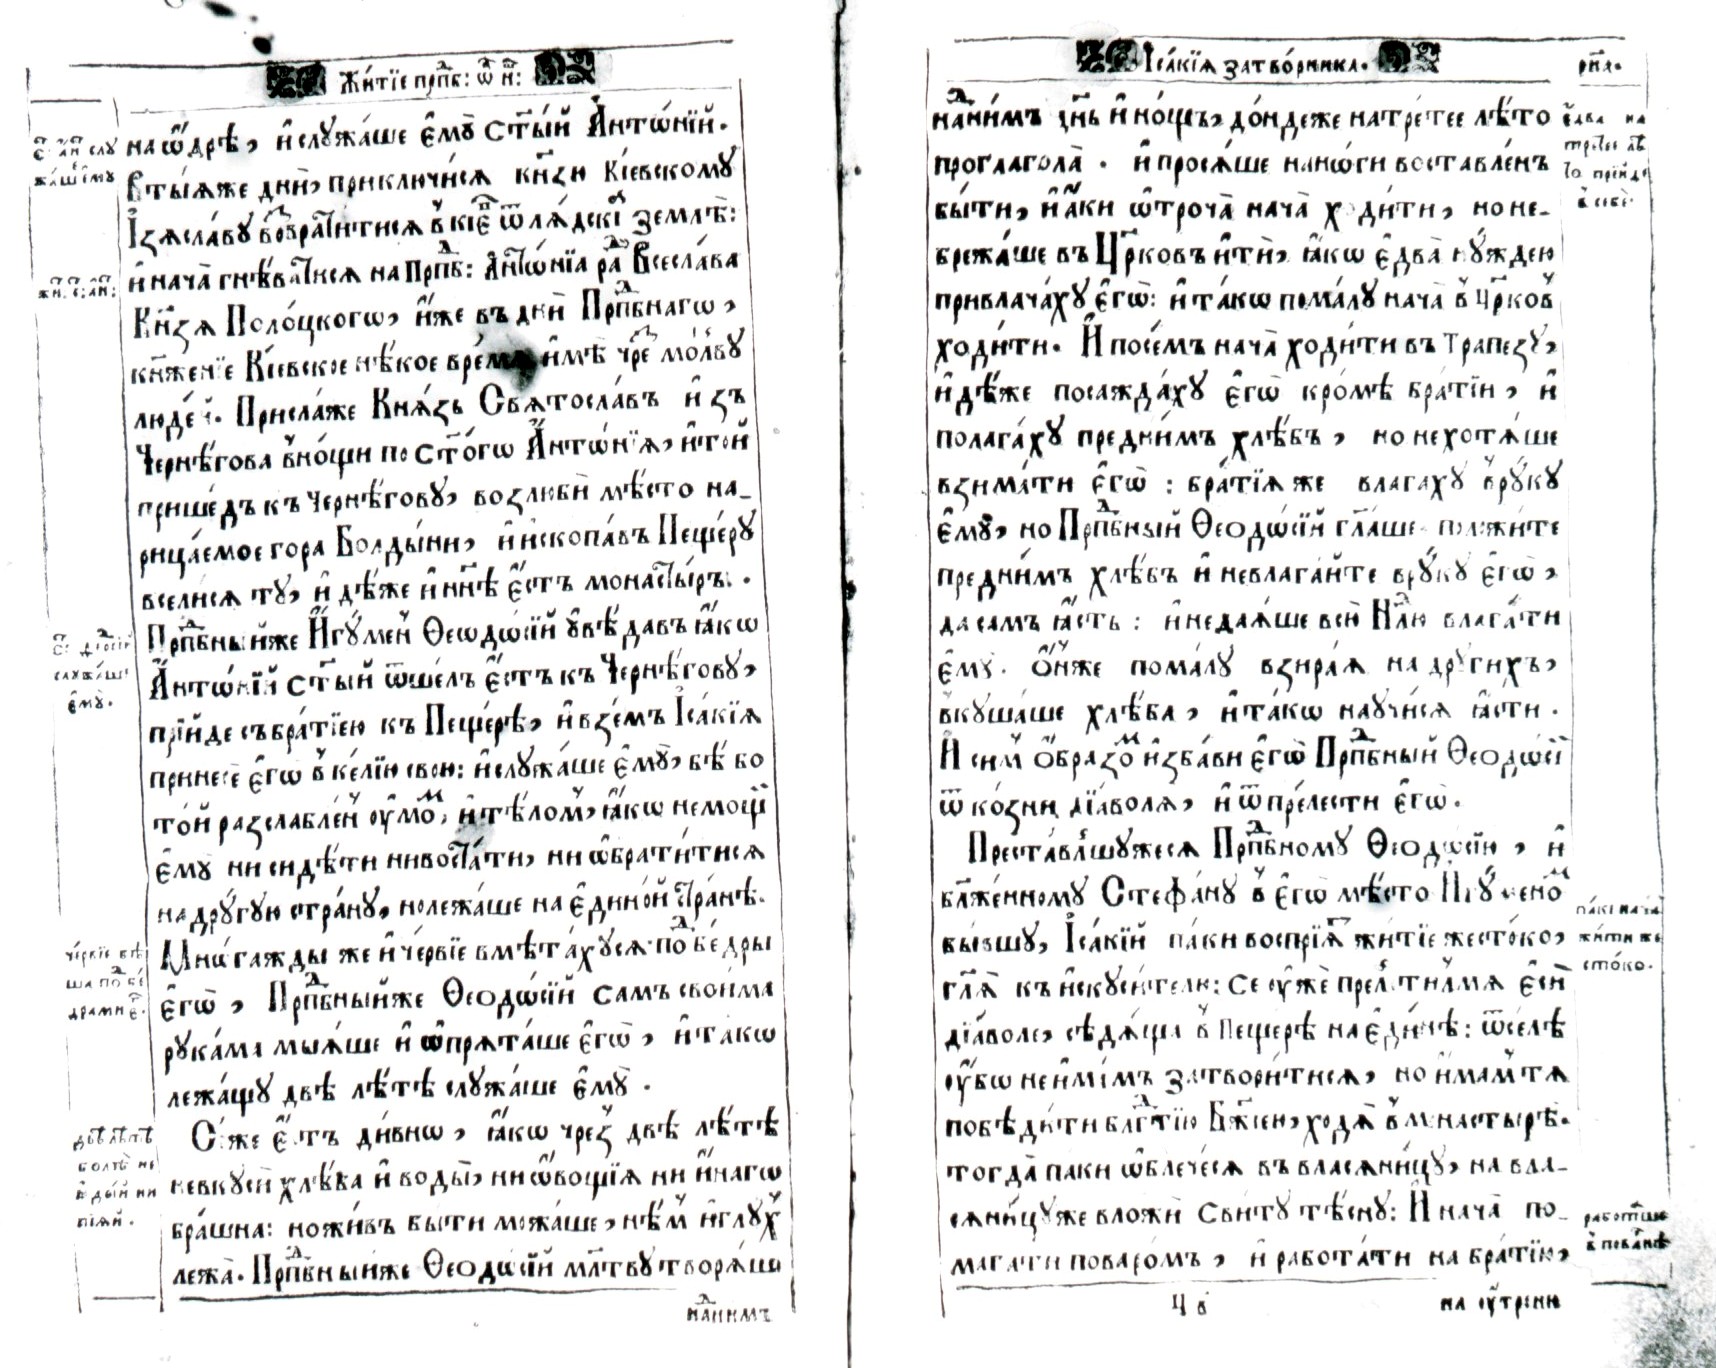 Жи́тїе прпⷣб: ѿ н҃:
на ѻ҆дрѣ̀, и҆ слꙋжа́ше є҆мꙋ̀ ст҃ы́й А҆нтѡ́нїй.
Втыѧ́же дни̑, приклю́чисѧ кн҃зю Кі́евскомꙋ
І҆зѧсла́вꙋ возврати́тисѧ в̾ кі́ев ѿ лѧ́дскїѧ землѝ:
и҆ нача̀ гнѣ́ватисѧ на Прпⷣб: А҆нтѡ́нїа ра́ди Всесла́ва
Кн҃зѧ По́лоцкогѡ, и҆́же въ дни̑ Прпⷣбнагѡ,
кн҃же́нїе Кі́евское нѣ́кое вре́мѧ и҆мѣ̀ чре́з мо́лвꙋ
люде́й. Присла́же Кнѧ́зь Свѧтосла́въ и҆зъ
Черне́гова в̾но́щи по ст҃о́гѡ А҆нтѡ́нїѧ, и҆ то́й
прише́дъ къ Черне́говꙋ, возлюбѝ мѣ́сто на-
рица́емое гора Болды́ни, и҆ и҆скопа́въ Пеще́рꙋ
всели́сѧ тꙋ̀, и҆дѣ́же и҆ нн҃ѣ є҆́стъ монасты́рь.
Прпⷣбны́йже И҆гꙋ́мен Ѳеодѡ́сїй ᲂу҆вѣ́давъ ꙗ҆́кѡ
А҆нтѡ́нїй ст҃ы́й ѿше́лъ є҆́стъ къ Черне́говꙋ,
прїи́де съ бра́тїею къ Пеще́рѣ, и҆ взе́мъ І҆са́кїѧ
принесѐ є҆гѡ̀ в̾ ке́лїю свою: и҆ слꙋжа́ше є҆мꙋ̀, бѣ́ бо
то́й разслабле́н ᲂу҆мо́м, и҆ тѣ́лом, ꙗ҆́кѡ немощи
є҆мꙋ̀ ни сидѣ́ти ни воста́ти, ни ѡ҆брати́тисѧ
на дрꙋ́гꙋю стра́нꙋ, но лежа́ше на є҆ди́ной стра́нѣ.
Мно́гажды же и҆ че́рвїе вмѣта́хꙋсѧ под бе́дры
є҆гѡ̀, Прпⷣбны́йже Ѳеодѡ́сїй самъ свои́ма
рꙋка́ма мыѧ́ше и҆ ѡ҆прѧта́ше є҆гѡ̀, и҆ та́кѡ
лежа́щꙋ двѣ̀ лѣ́тѣ слꙋжа́ше є҆мꙋ̀.
Се́ же є҆́стъ ди́внѡ, ꙗ҆́кѡ чрез двѣ̀ лѣ́тѣ
невкꙋсѝ хлѣ́ба и҆ воды̀, ни ѻ҆во́щїѧ ни и҆на́гѡ
бра́шна: но жи́въ бы́ти можа́ше, нѣ́м и҆ глꙋ́х
лежа̀. Прпⷣбны́йже Ѳеодѡ́сїй мл҃твꙋ творѧ́ше
над ни́мъ
ст҃: ан҃: слꙋ
жа́ше є҆мꙋ
жи. ст҃: ан҃:
ст҃: Ѳеодо́сїй
слꙋжа́ше
є҆мꙋ̀.
че́рвїе бѣ́
ша под бе́
драми є҆г.
двѣ̀ лѣ́тѣ
болѣ̀ не
ѣды́й ни
пїѧ́й.
І҆са́кїѧ затво́рника.
рн҃а.
над ни́мъ дн҃ь и҆ но́щъ, до́ндеже на тре́тее лѣ́то
прогл҃агола̀. и҆ просѧ́ше на но́ги воставле́нъ
бы́ти, и҆ а҆́ки ѻ҆троча̀ нача̀ ходи́ти, но не-
брежа́ше въ Цр҃ковъ и҆тѝ, ꙗ҆́кѡ є҆два̀ нꙋ́ждею
привлача́хꙋ є҆гѡ̀: и҆ та́кѡ пома́лꙋ нача̀ в̾ цр҃ковъ
ходи́ти. И҆ посе́мъ нача̀ ходи́ти въ Трапе́зꙋ,
и҆дѣ́же посажда́хꙋ є҆гѡ̀ кро́мѣ бра́тїи, и҆
полага́хꙋ предни́мъ хлѣ́бъ, но не хотѧ́ше
взима́ти є҆гѡ̀: бра́тїѧ же влага́хꙋ в̾рꙋ́кꙋ
є҆мꙋ̀, но Прпⷣбный Ѳеодѡ́сїй гл҃аше: положи́те
предни́мъ хлѣ́бъ и҆ невлага́йте в̾рꙋ́кꙋ є҆гѡ̀,
да самъ ꙗ҆́сть: и҆ недаѧ́ше всю Нⷣлю влага́ти
є҆мꙋ̀. Ѻ҆́нже пома́лꙋ взира́ѧ на дрꙋги́хъ,
вкꙋша́ше хлѣ́ба, и҆ та́кѡ наꙋчи́сѧ ꙗ҆́сти.
И҆ си́м ѻ҆́бразом и҆зба́ви є҆гѡ̀ Прпⷣбный Ѳеодѡ́сїй
ѿ ко́зни дїа́волѧ, и҆ ѿ пре́лести є҆гѡ̀.
Преста́вльшꙋжесѧ Прпⷣбномꙋ Ѳеодѡ́сїю, и҆
бл҃же́нномꙋ Стефа́нꙋ в̾ є҆гѡ̀ мѣ́сто И҆гꙋ́меном
бы́вшꙋ, І҆са́кїй па́ки воспрїѧ́т жи́тїе жесто́ко,
гл҃ѧ къ и҆скꙋси́телю: се ᲂу҆жѐ прелсти́лмѧ є҆сѝ
дїа́воле, сѣдѧ́ща в̾ пеще́рѣ на є҆ди́нѣ: ѿсе́лѣ
ᲂу҆́бѡ не и҆мамъ затвори́тисѧ, но и҆мамъ тѧ
побѣди́ти блⷣгтїю Бж҃їею, ходѧ̀ в̾ монастырѣ̀.
тогда̀ па́ки ѡ҆блече́сѧ въ власѧни́цꙋ, на вла-
сѧни́цꙋже вложѝ сви́тꙋ тѣ́снꙋ: И҆ нача̀ по-
мага́ти поваро́мъ, и҆ рабо́тати на бра́тїю,
є҆два̀ на
тре́тее лѣ́
то прїи́де
в̾ себѐ.
па́ки нача̀
жи́ти же
сто́ко.
рабо́таше
в̾ пова́рнѣ
Цв҃
на ᲂу҆́треню